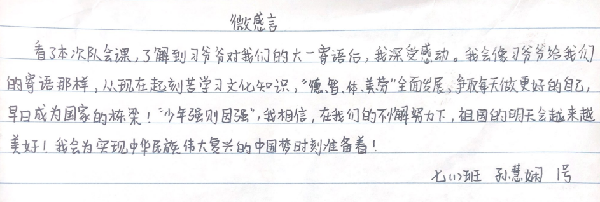 微感言
看了本次队会课，了解到习爷爷对我们的六一寄语后，我深受感动。我会像习爷爷给我们
的寄语那样，从现在起刻苦学习文化知识，“德、智、体、美、劳”全面发展、争取每天做更好的自己，
早日成为国家的栋梁！“少年强则国强”，我相信，在我们的不懈努力下，祖国的明天会越来越
美好！我会为实现中华民族伟大复兴的中国梦时刻准备着！
七(1)班 孙慧娴 1号